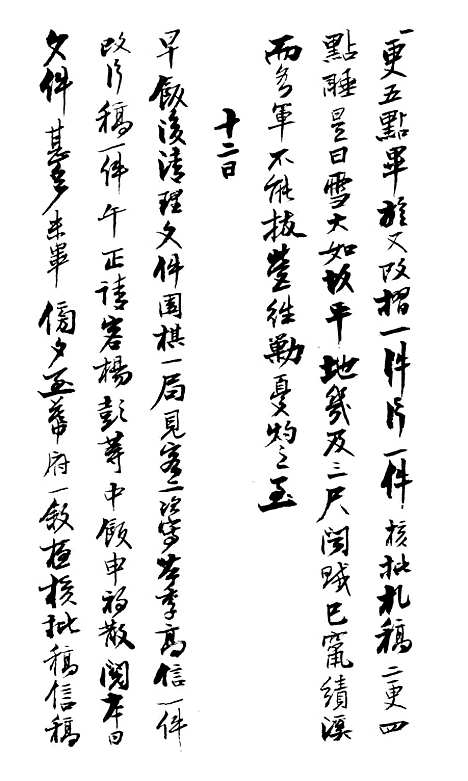 一更五點畢旋又改摺一件片一件核批札稿二更四
點睡是日雪大如故平地幾及三尺聞賊已竄績溪
而各軍不能拔營往勦憂灼之至
十二日
早飯後清理文件圍棋一局見客二次寫左季高信一件
改片稿一件午正請客楊彭等中飯申初散閱本日
文件甚多未畢傍夕至幕府一敘夜核批稿信稿